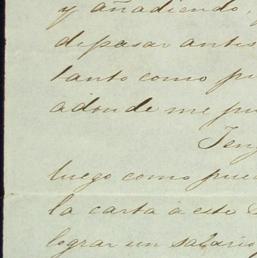 y añadiendo,
de pasar antes
tanto como pu
adonde me pu
Teng
luego como pue
la carta a este
lograr un salario